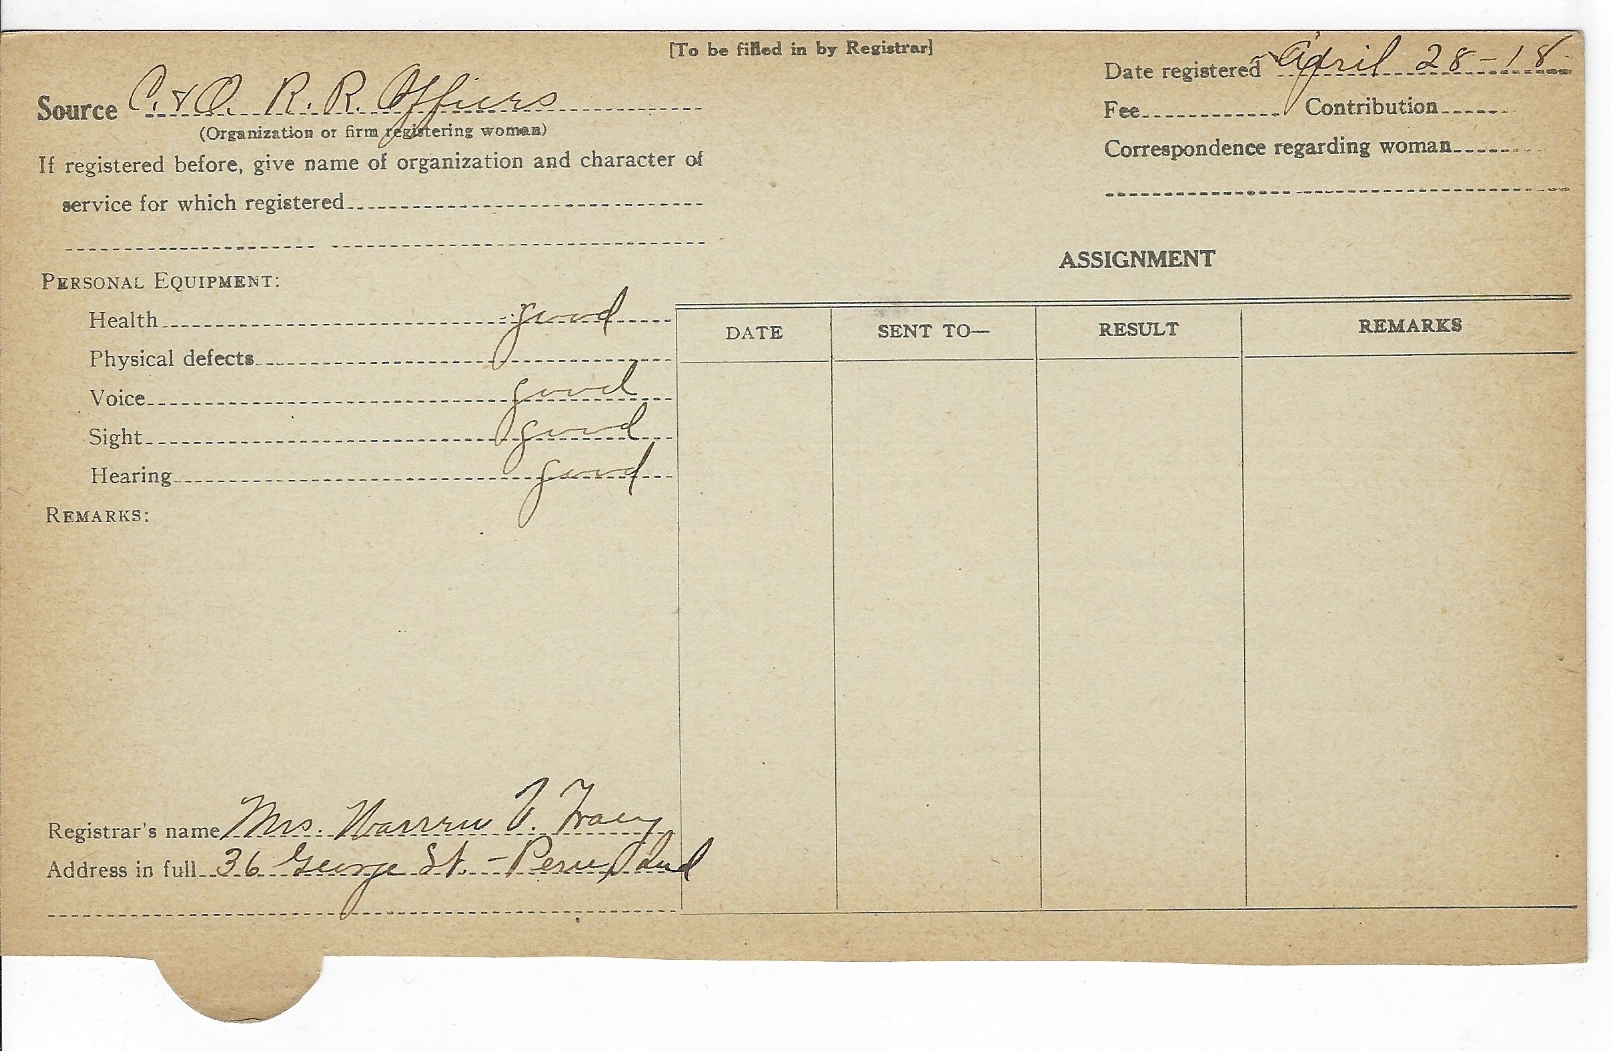 [To be filled in by Registrar]
Date registered April 28-18.
Source C. & O. R. R. Offices
Fee Contribution
(Organization or firm registering woman)
Correspondence regarding woman
If registered before, give name of organization and character of
service for which registered
PERSONAL EQUIPMENT:
Health good
Physical defects
Voice good
Sight good
Hearing good
REMARKS:
Registrar's name Mrs. Warren V. Tracy
Address in full 36 George St. - Peru, Ind
ASSIGNMENT
DATE SENT TO— RESULT REMARKS